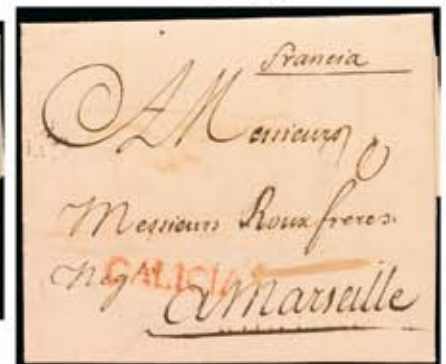 Francia
A Messieurs
Messieurs Roux freres
Neg
GALICIA
a Marseille